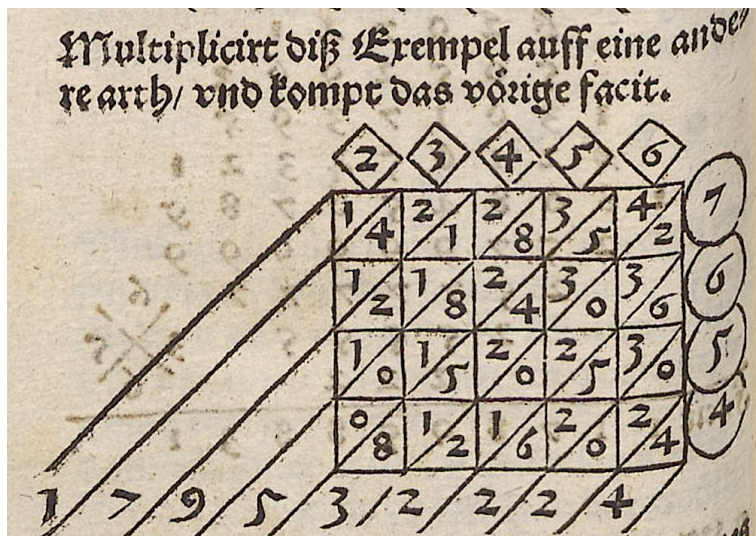 Multiplicirt diß Exempel auff eine ande-
re arth/ vnd kompt das vörige facit.
2 3 4 5 6
1 4 2 1 2 8 3 5 4 2 7
1 2 1 8 2 4 3 0 3 6 6
1 0 1 5 2 0 2 5 3 0 5
0 8 1 2 1 6 2 0 2 4 4
1 7 9 5 3 2 2 2 4